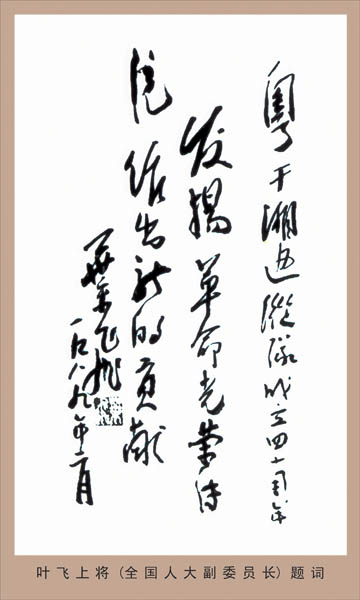 粤干湘边纵队成立四十周年
发揚革命光荣传
统 作出新的贡献
葉飞
一九八九年二月
叶飞上将（全国人大副委员长）题词